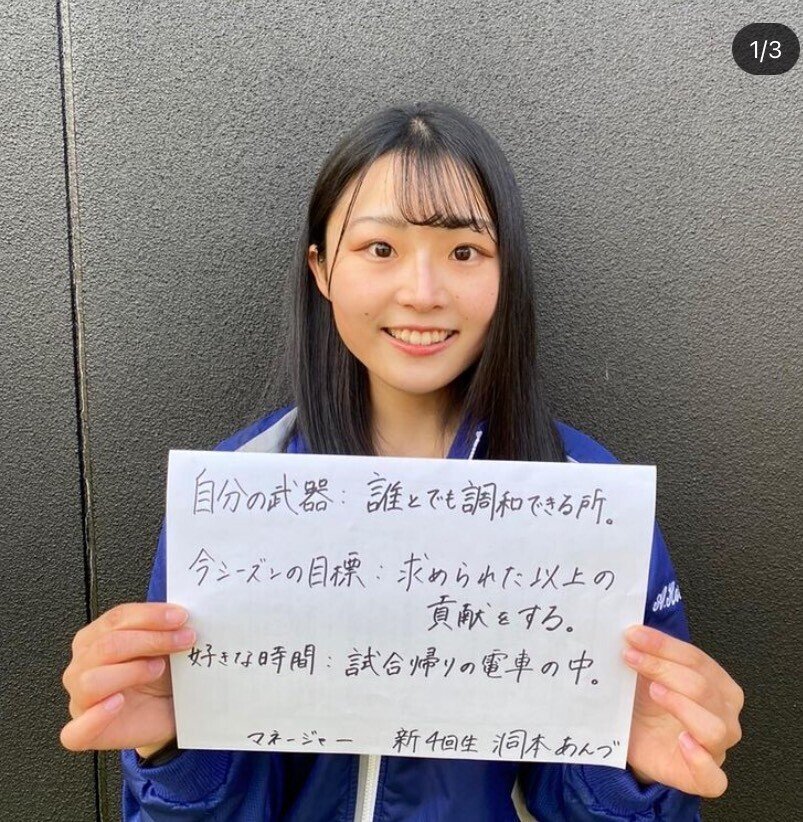 1/3
自分の武器：誰とでも調和できる所。
今シーズンの目標：求められた以上の
貢献をする。
好きな時間：試合帰りの電車の中。
マネージャー 新4回生 洞本あんづ